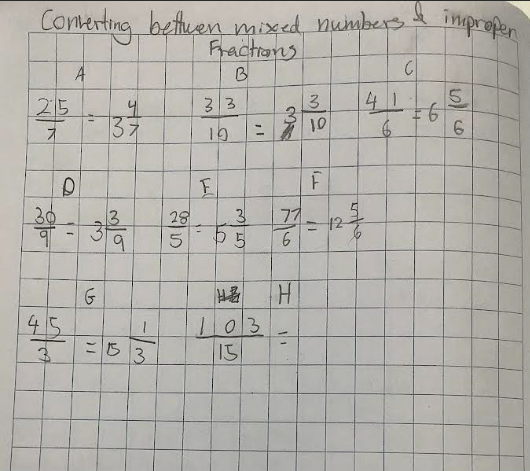 Converting between mixed numbers & improper
Fractions
A B C
25/7 = 3 4/7 33/10 = 3 3/10 41/6 = 6 5/6
D E F
30/9 = 3 3/9 28/5 = 5 3/5 77/6 = 12 5/6
G H
45/3 = 15 1/3 103/15 =